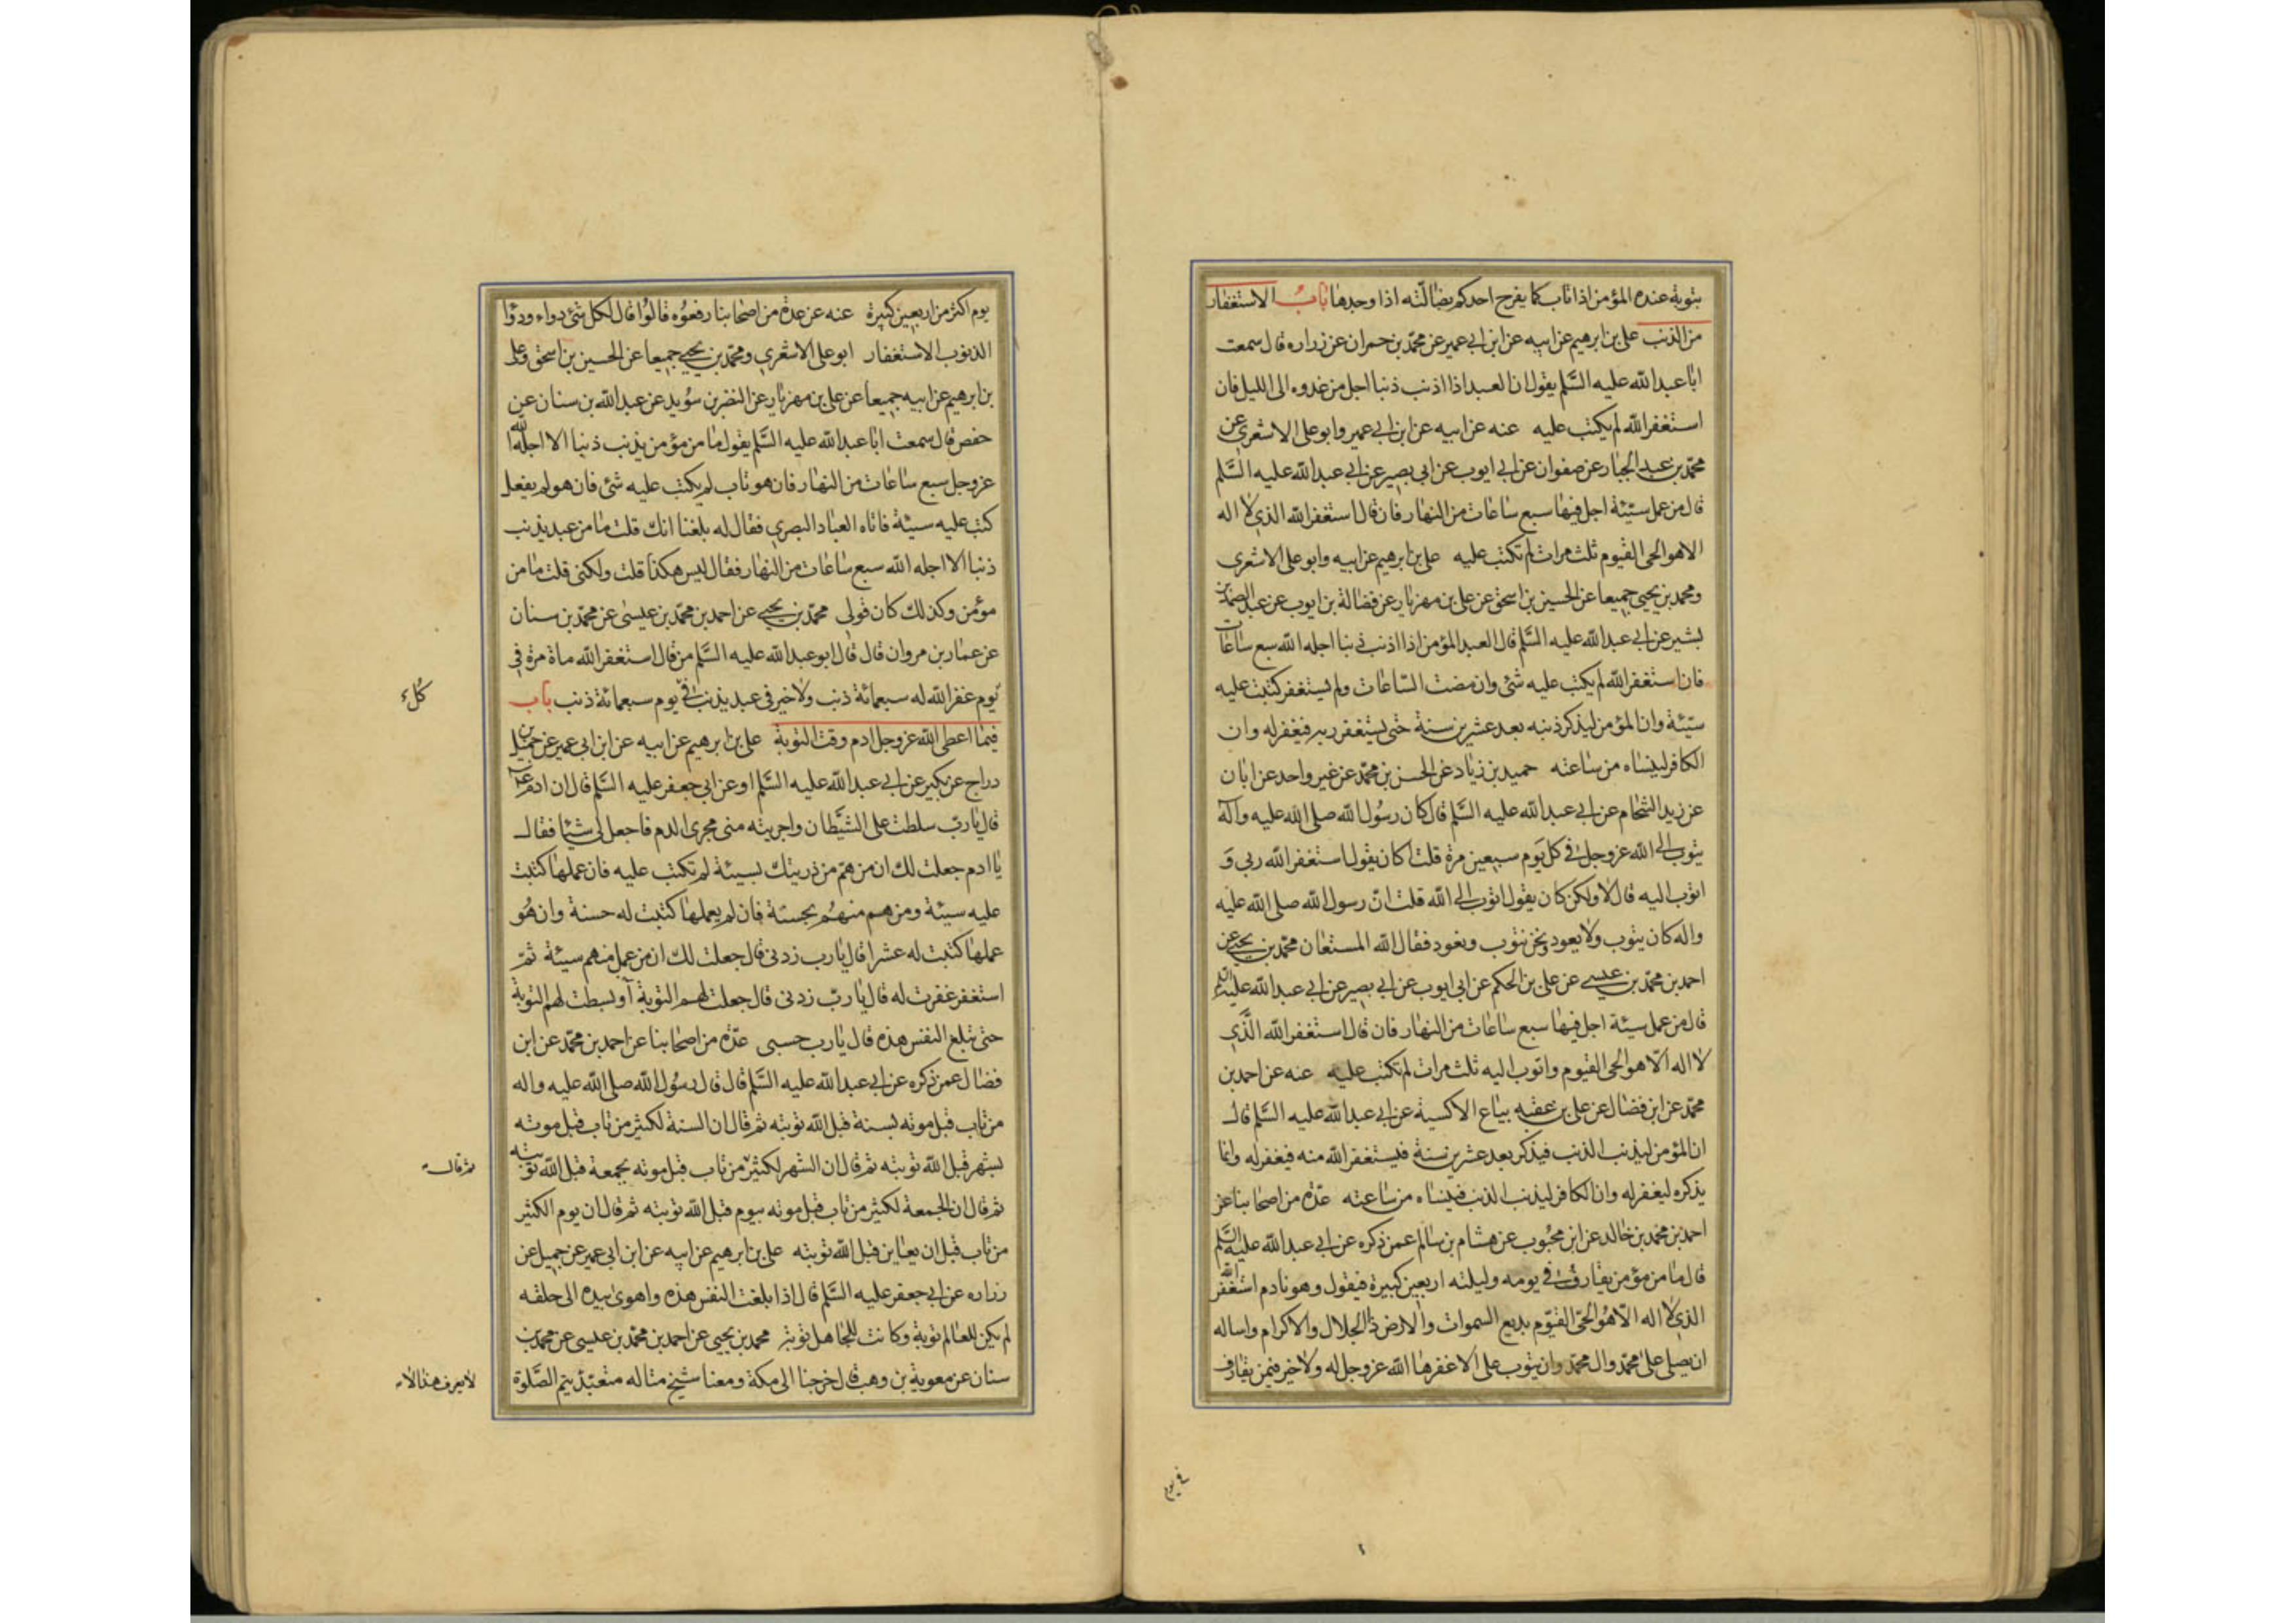 بتوبة عنده المؤمن اذا تاب كما يفرح احدكم بضالّته اذا وجدها بابُ الاستغفار
من الذنب علىّ بن ابرهيم عن ابيه عن ابن ابى عمير عن محمّد بن حمران عن زراره قال سمعت
ابا عبد الله عليه السَّلم يقول ان العبد اذا اذنب ذنبا اجل من غدوه الى الليل فان
استغفر الله لم يكتب عليه عنه عن ابيه عن ابن ابى عمير وابو على الاشعرى عن
محمّد بن عبد الجبار عن صفوان عن ابى ايوب عن ابى بصير عن ابى عبد الله عليه السَّلم
قال من عمل سيّئة اجل فيها سبع ساعات من النهار فان قال استغفر الله الذى لا اله
الا هو الحى القيوم ثلث مرات لم تكتب عليه على بن ابرهيم عن ابيه وابو على الاشعرى
ومحمد بن يحيى جميعا عن الحسين بن اسحق عن على بن مهزيار عن فضالة بن ايوب عن عبد الصمد بن
بشير عن ابى عبد الله عليه السَّلم قال العبد المؤمن اذا اذنب ذنبا اجله الله سبع ساعات
فان استغفر الله لم يكتب عليه شئ وان مضت السّاعات ولم يستغفر كتبت عليه
سيّئة وان المؤمن ليذكر ذنبه بعد عشرين سنة حتى يستغفر ربه فيغفر له وان
الكافر لينساه من ساعته حميد بن زياد عن الحسن بن محمّد عن غير واحد عن ابان
عن زيد الشحام عن ابى عبد الله عليه السَّلم قال كان رسُول الله صلى الله عليه وآله
يتوب الى الله عز وجل فى كل يَوم سبعين مرة قلت اكان يقول استغفر الله ربى وَ
اتوب اليه قال لا ولكن كان يقول اتوب الى الله قلت انّ رسول الله صلى الله عليه
واله كان يتوب ولا يعود ونحن نتوب ونعود فقال الله المستعان محمّد بن يحيى عن
احمد بن محمّد بن عيسى عن على بن الحكم عن ابى ايوب عن ابى بصير عن ابى عبد الله عليه السّلم
قال من عمل سيئة اجل فيها سبع ساعات من النهار فان قال استغفر الله الَّذى
لا اله الّا هو الحى القيوم واتوب اليه ثلث مرات لم تكتب عليه عنه عن احمد بن
محمّد عن ابن فضال عن على بن عقبه بياع الاكسية عن ابى عبد الله عليه السَّلم قال
ان المؤمن ليذنب الذنب فيذكر بعد عشرين سنة فيستغفر الله منه فيغفر له وانما
يذكره ليغفر له وان الكافر ليذنب الذنب فينساه من ساعته عدّة من اصحابنا عن
احمد بن محمد بن خالد عن ابن محبُوب عن هشام بن سالم عمن ذكره عن ابى عبد الله عليه السَّلم
قال ما من مؤمن يقارف فى يومه وليلته اربعين كبيرة فيقول وهو نادم استغفر الله
الذى لا اله الّا هُو الحىّ القيّوم بديع السموات والارض ذا الجلال والاكرام واساله
ان يصلى على محمّد وال محمّد وان يتوب على الا غفرها الله عز وجل له ولا خير فيمن يقارف
فى يوم
يوم اكثر من اربعين كبيرة عنه عن عدة من اصحابنا رفعُوه قالُوا قال لكل شئ دواء ودوآا
الذنوب الاستغفار ابو على الاشعرى ومحمّد بن يحيى جميعا عن الحسين بن اسحق وعلى
بن ابرهيم عن ابيه جميعا عن على بن مهزيار عن النضر بن سُويد عن عبد الله بن سنان عن
حفص قال سمعت ابا عبد الله عليه السَّلم يقول ما من مؤمن يذنب ذنبا الا اجله الله
عز وجل سبع ساعات من النهار فان هو تاب لم يكتب عليه شئ فان هو لم يفعل
كتب عليه سيئة فاتاه العباد البصرى فقال له بلغنا انك قلت ما من عبد يذنب
ذنبا الا اجله الله سبع ساعات من النهار فقال ليس هكذا قلت ولكنى قلت ما من
مؤمن وكذلك كان قولى محمّد بن يحيى عن احمد بن محمّد بن عيسى عن محمّد بن سنان
عن عمّار بن مروان قال قال ابو عبد الله عليه السَّلم من قال استغفر الله ماة مرة فى
يَوم غفر الله له سبعمائة ذنب ولا خير فى عبد يذنب فى يوم سبعمائة ذنب باب
كلّ
فيما اعطى الله عز وجل ادم وقت التوبة على بن ابرهيم عن ابيه عن ابن ابى عمير عن جميل بن
دراج عن بكير عن ابى عبد الله عليه السَّلم او عن ابى جعفر عليه السَّلم قال ان ادم
قال يا ربّ سلطت على الشَّيطان واجريته منى مجرى الدم فاجعل لى شيئا فقال
يا ادم جعلت لك ان من همّ من ذريتك بسيئة لم تكتب عليه فان عملها كتبت
عليه سيئة ومن هم منهُم بحسنة فان لم يعملها كتبت له حسنة وان هُو
عملها كتبت له عشرا قال يا رب زدنى قال جعلت لك ان من عمل منهم سيئة ثمّ
استغفر غفرت له قال يا ربّ زدنى قال جعلت لهم التوبة او بسطت لهم التوبة
حتى تبلغ النفس هذه قال يا رب حسبى عدّة من اصحابنا عن احمد بن محمّد عن ابن
فضال عمن ذكره عن ابى عبد الله عليه السَّلم قال قال رسُول الله صلى الله عليه واله
من تاب قبل موته بسنة قبل الله توبته ثم قال ان السنة لكثير من تاب قبل موته
بشهر قبل الله توبته ثم قال ان الشهر لكثير من تاب قبل موته بجمعة قبل الله توبته
ثم قال
ثم قال ان الجمعة لكثير من تاب قبل موته بيوم قبل الله توبته ثم قال ان يوم الكثير
من تاب قبل ان يعاين قبل الله توبته على بن ابرهيم عن ابيه عن ابن ابى عمير عن جميل عن
زراره عن ابى جعفر عليه السَّلم قال اذا بلغت النفس هذه واهوى بيده الى حلقه
لم يكن للعالم توبة وكانت للجاهل توبة محمد بن يحيى عن احمد بن محمّد بن عيسى عن محمد بن
سنان عن معوية بن وهب قال خرجنا الى مكة ومعنا شيخ متاله متعبّد يتم الصَّلوة
لا يعرف هذا الامر